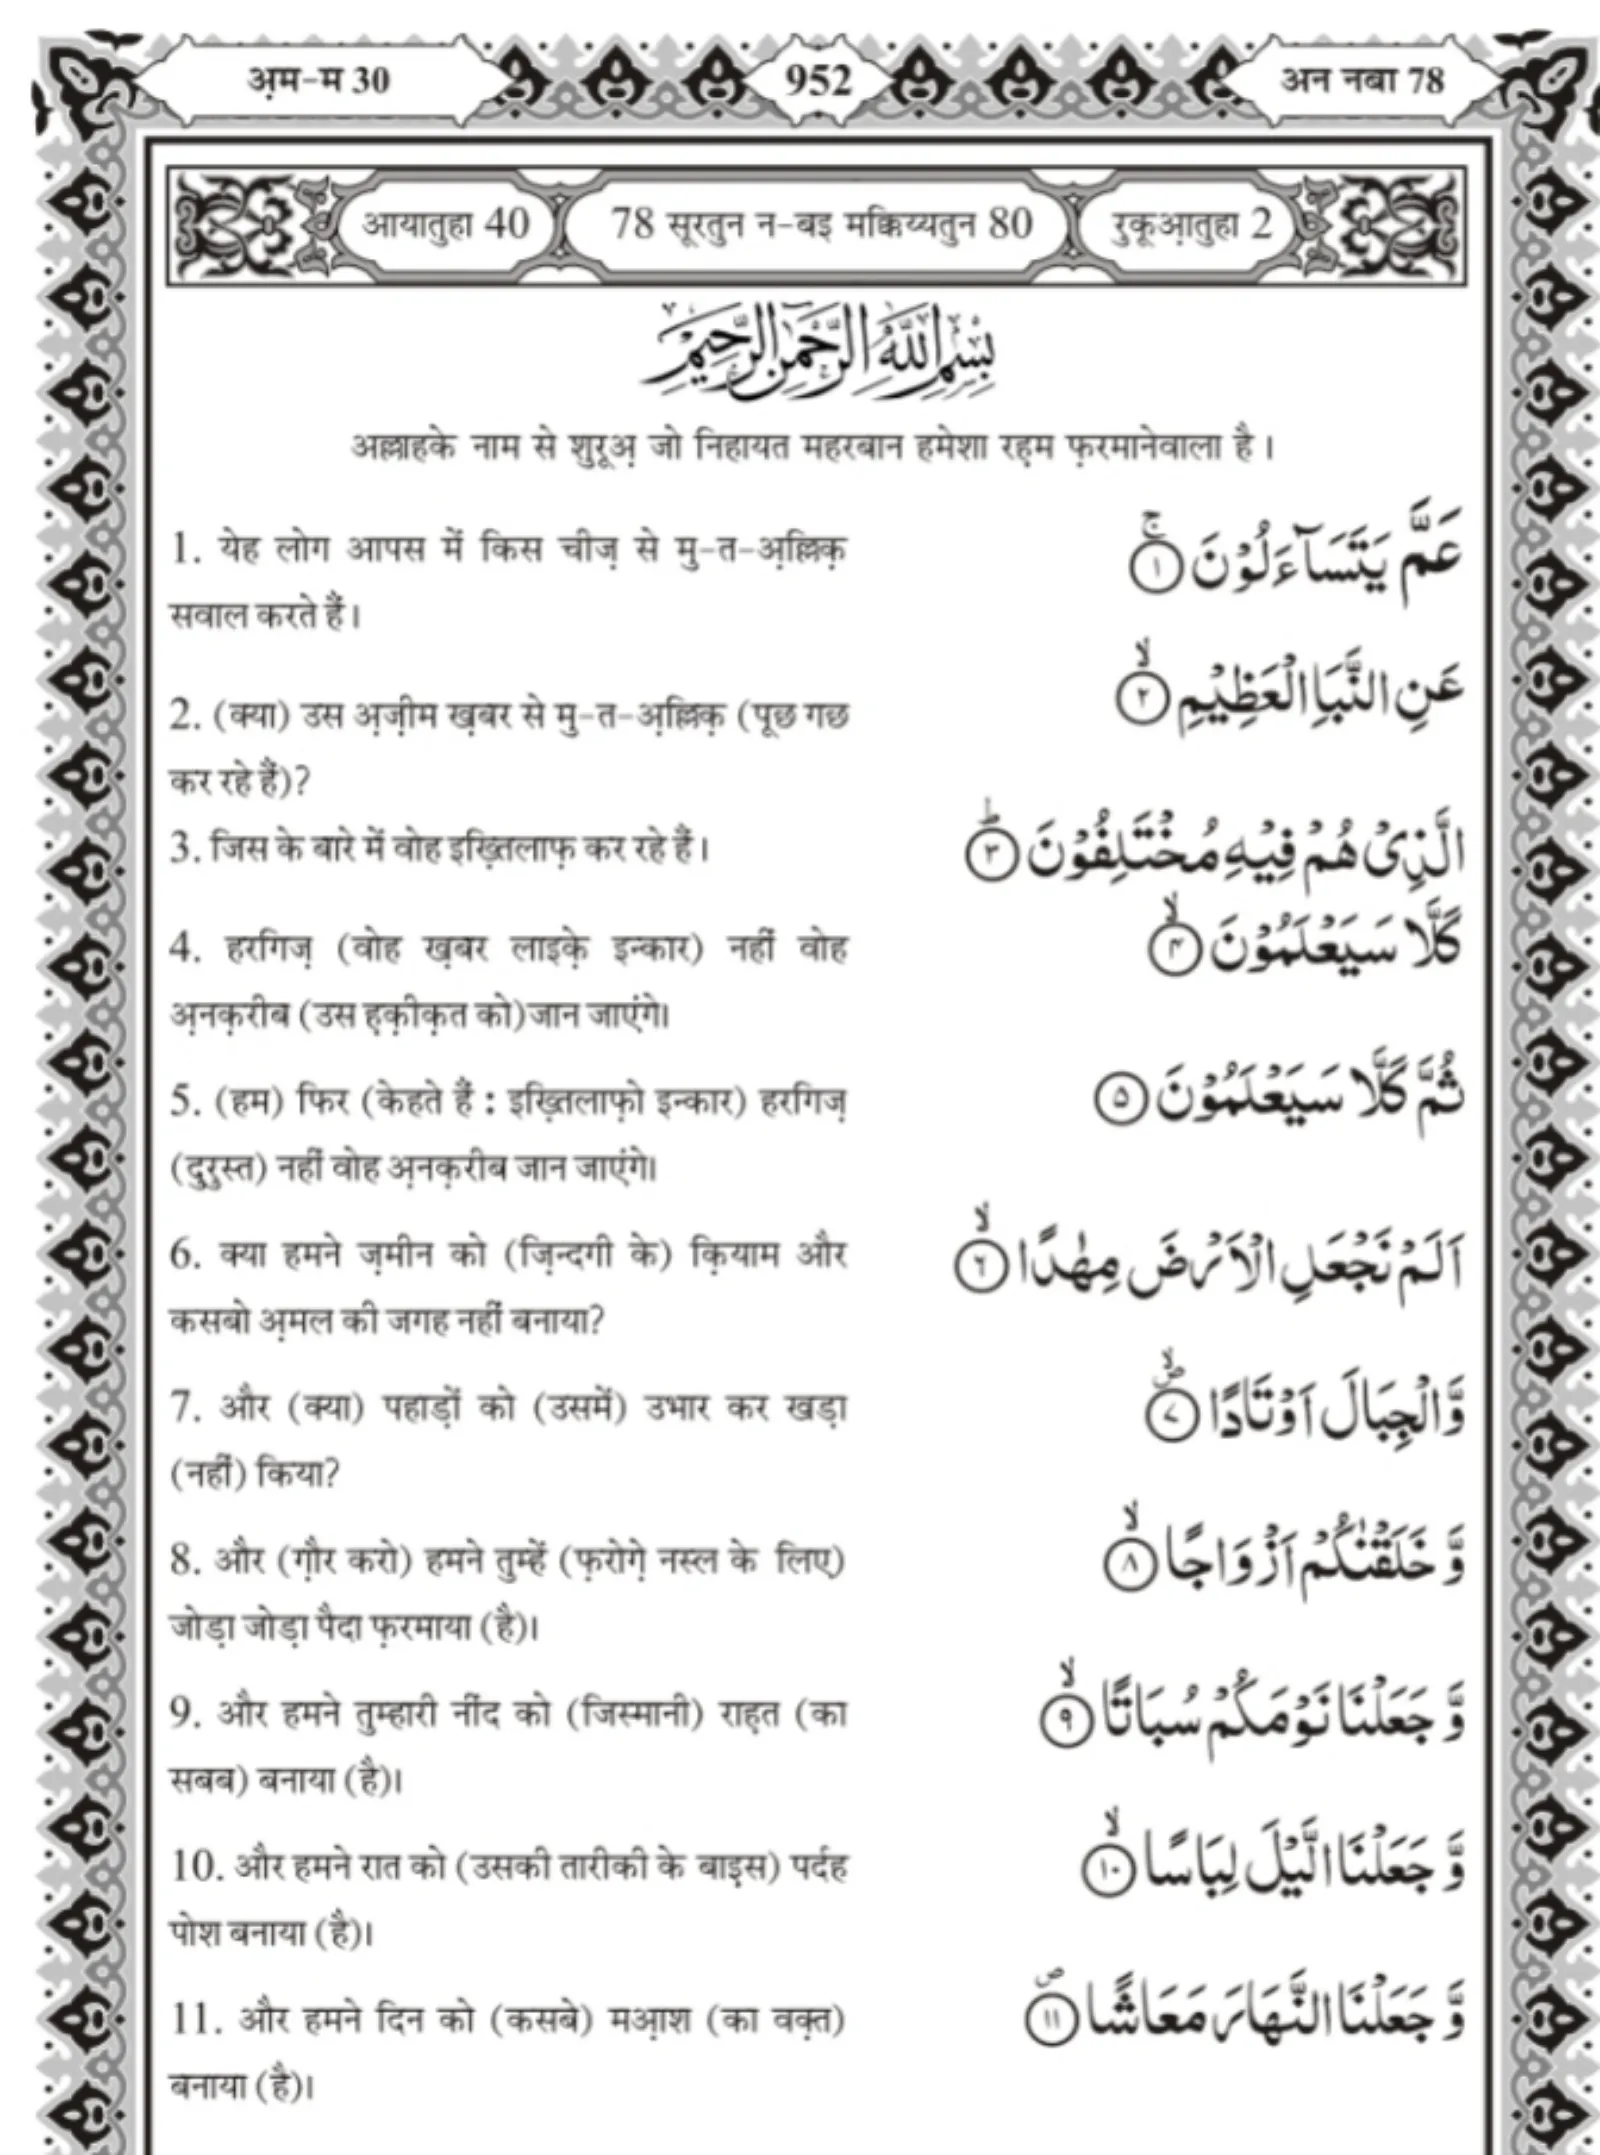 अ़म-म 30
952
अन नबा 78
आयातुहा 40
78 सूरतुन न-बइ मक्किय्यतुन 80
रुकूआ़तुहा 2
بِسْمِ اللّٰهِ الرَّحْمٰنِ الرَّحِيْمِ
अल्लाहके नाम से शुरूअ़ जो निहायत महरबान हमेशा रह़म फ़रमानेवाला है ।
1. येह लोग आपस में किस चीज़ से मु-त-अ़ल्लिक़
सवाल करते हैं।
عَمَّ يَتَسَآءَلُوْنَ ۚ‏ ﴿۱﴾
2. (क्या) उस अ़ज़ीम ख़बर से मु-त-अ़ल्लिक़ (पूछ गछ
कर रहे हैं)?
عَنِ النَّبَاِ الْعَظِيْمِ ۙ‏ ﴿۲﴾
3. जिस के बारे में वोह इख़्तिलाफ़ कर रहे हैं।
الَّذِىْ هُمْ فِيْهِ مُخْتَلِفُوْنَ ؕ‏ ﴿۳﴾
4. हरगिज़ (वोह ख़बर लाइक़े इन्कार) नहीं वोह
अ़नक़रीब (उस ह़क़ीक़त को)जान जाएंगे।
كَلَّا سَيَعْلَمُوْنَ ۙ‏ ﴿۴﴾
5. (हम) फिर (केहते हैं : इख़्तिलाफ़ो इन्कार) हरगिज़
(दुरुस्त) नहीं वोह अ़नक़रीब जान जाएंगे।
ثُمَّ كَلَّا سَيَعْلَمُوْنَ ﴿۵﴾
6. क्या हमने ज़मीन को (ज़िन्दगी के) क़ियाम और
कसबो अ़मल की जगह नहीं बनाया?
اَلَمْ نَجْعَلِ الْاَرْضَ مِهٰدًا ۙ‏ ﴿۶﴾
7. और (क्या) पहाड़ों को (उसमें) उभार कर खड़ा
(नहीं) किया?
وَّالْجِبَالَ اَوْتَادًا ۪ۙ‏ ﴿۷﴾
8. और (ग़ौर करो) हमने तुम्हें (फ़रोग़े नस्ल के लिए)
जोड़ा जोड़ा पैदा फ़रमाया (है)।
وَّ خَلَقْنٰكُمْ اَزْوَاجًا ۙ‏ ﴿۸﴾
9. और हमने तुम्हारी नींद को (जिस्मानी) राह़त (का
सबब) बनाया (है)।
وَّ جَعَلْنَا نَوْمَكُمْ سُبَاتًا ۙ‏ ﴿۹﴾
10. और हमने रात को (उसकी तारीकी के बाइ़स) पर्दह
पोश बनाया (है)।
وَّ جَعَلْنَا الَّيْلَ لِبَاسًا ۙ‏ ﴿۱۰﴾
11. और हमने दिन को (कसबे) मआ़श (का वक़्त)
बनाया (है)।
وَّ جَعَلْنَا النَّهَارَ مَعَاشًا ۪‏ ﴿۱۱﴾